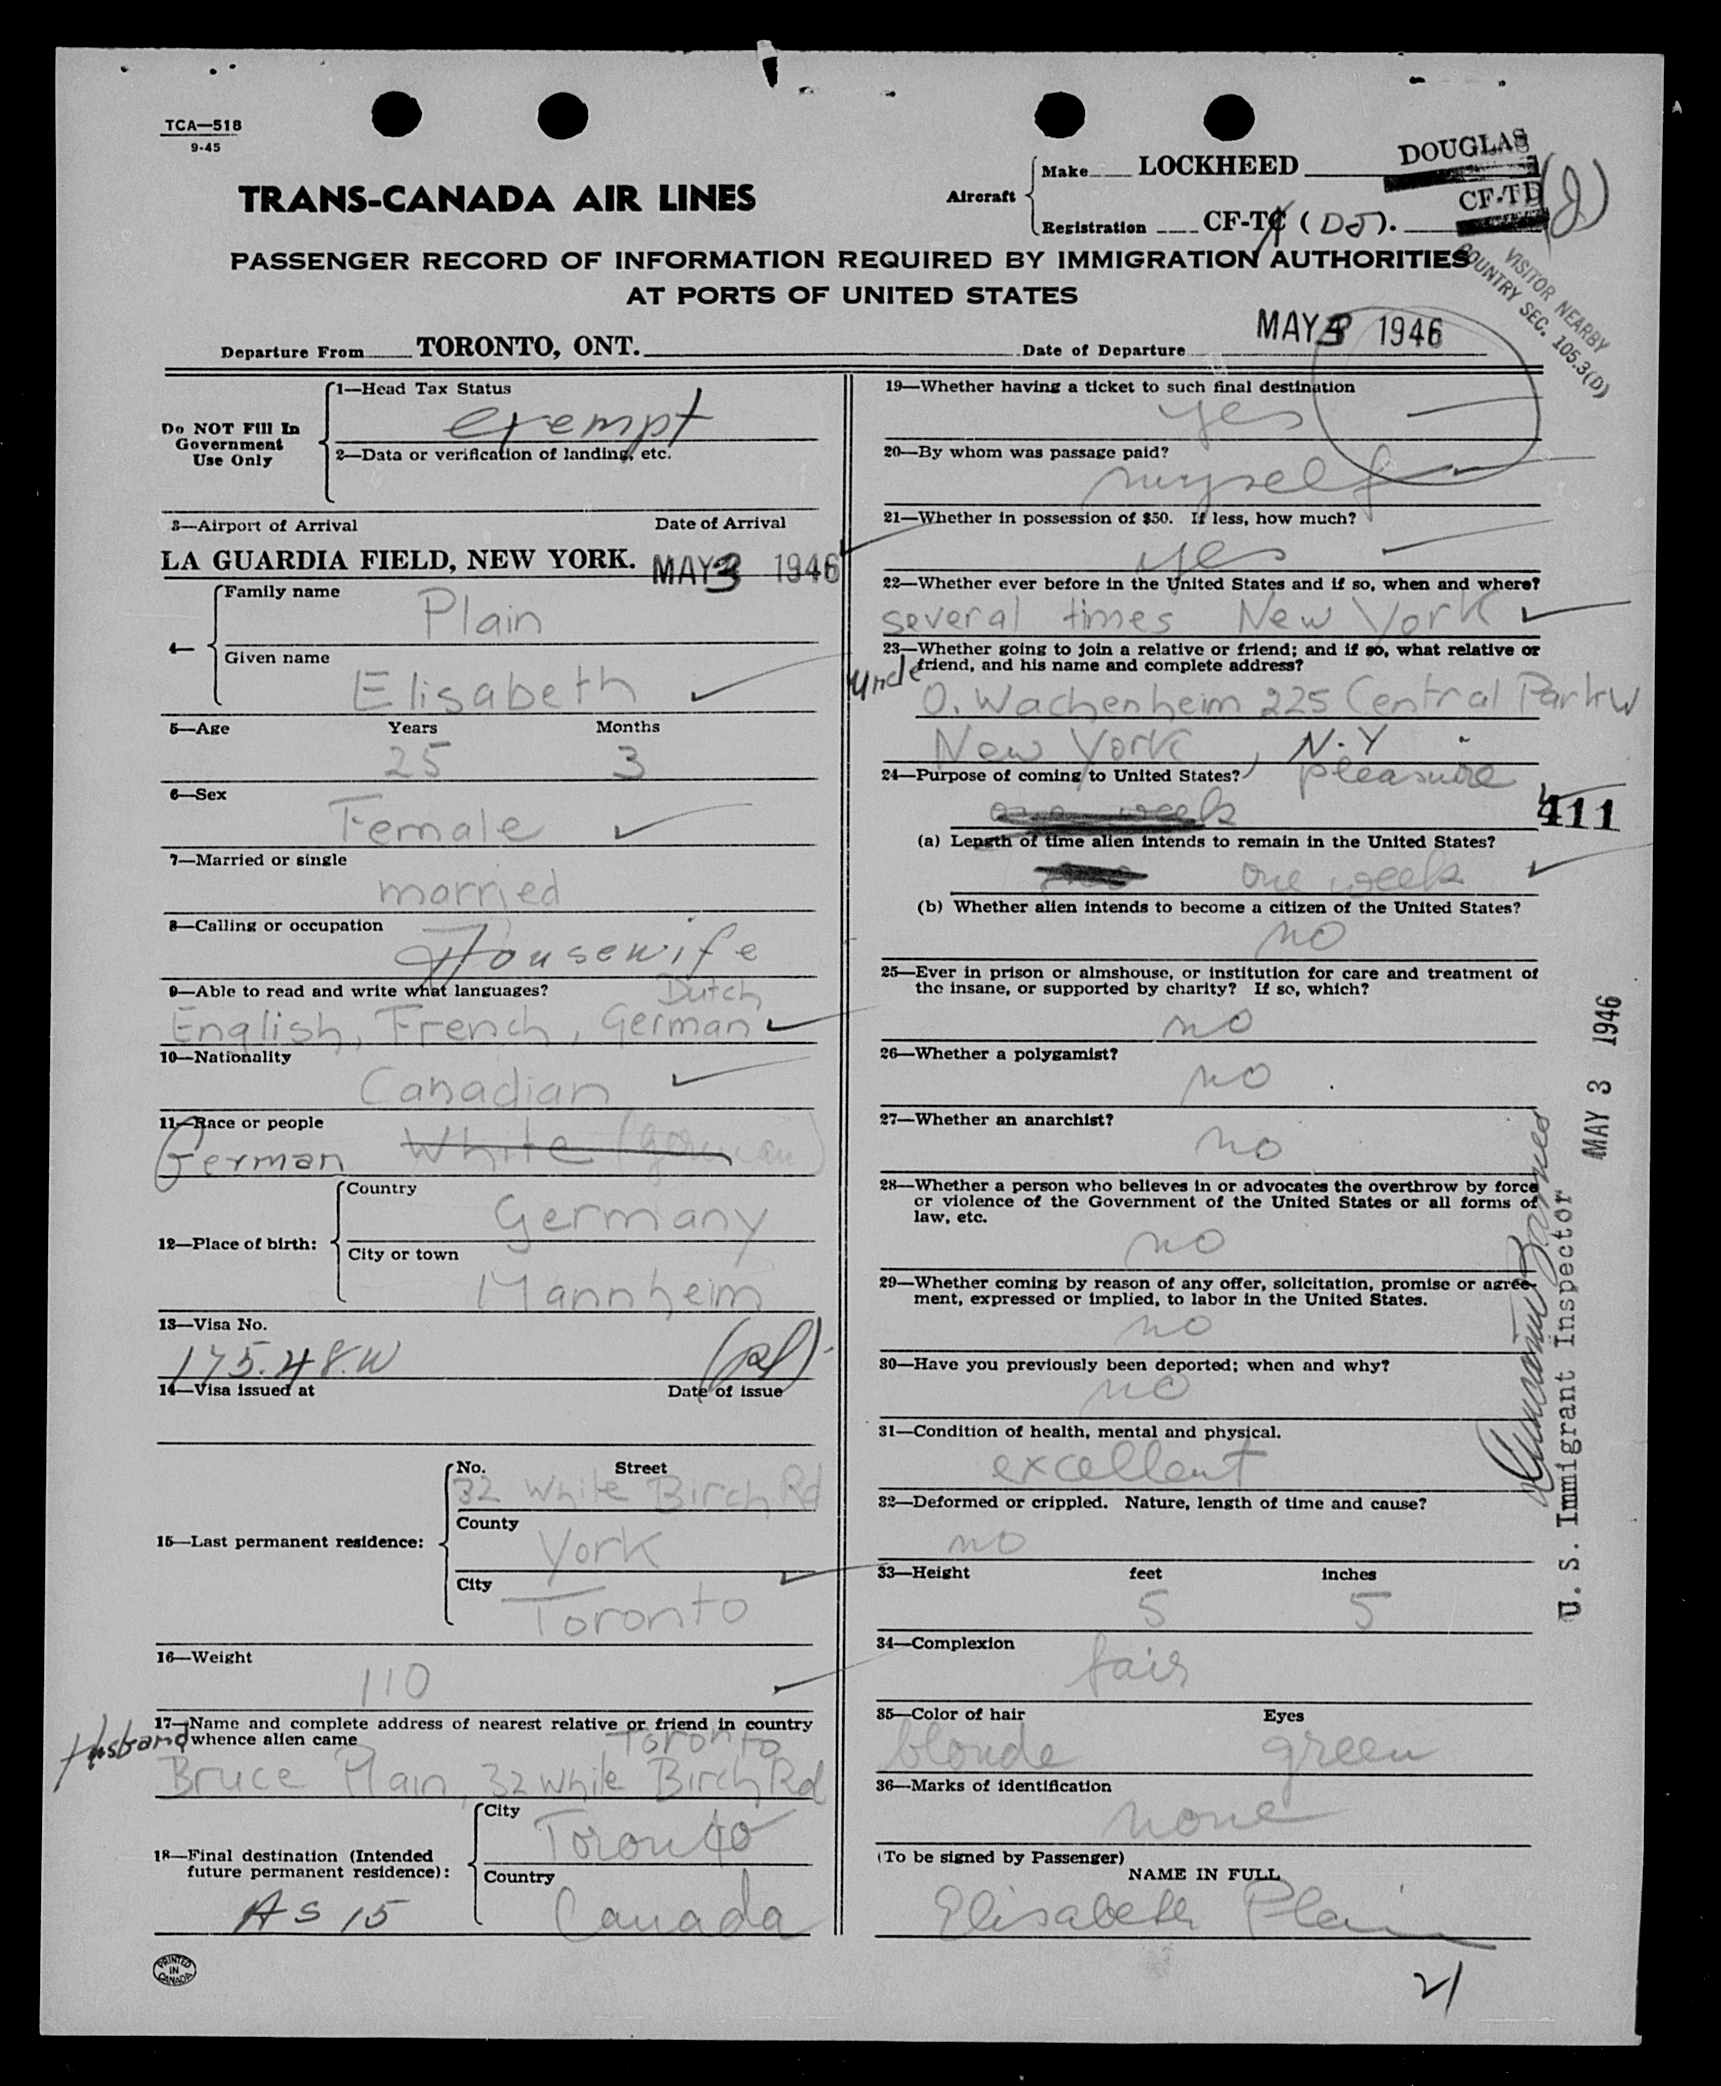 TCA—518
9-45
TRANS-CANADA AIR LINES
Aircraft
Make LOCKHEED
DOUGLAS
Registration CF-T (DJ).
CF-TD (J)
PASSENGER RECORD OF INFORMATION REQUIRED BY IMMIGRATION AUTHORITIES
AT PORTS OF UNITED STATES
VISITOR NEARBY
COUNTRY SEC. 105.3(D)
Departure From TORONTO, ONT. Date of Departure MAY 3 1946
Do NOT Fill In
Government
Use Only
1—Head Tax Status
exempt
2—Data or verification of landing, etc.
3—Airport of Arrival Date of Arrival
LA GUARDIA FIELD, NEW YORK. MAY 3 1946
4—
Family name
Plain
Given name
Elisabeth
5—Age Years Months
25 3
6—Sex
Female
7—Married or single
married
8—Calling or occupation
Housewife
9—Able to read and write what languages?
Dutch
English, French, German
10—Nationality
Canadian
11—Race or people
German White (German)
12—Place of birth:
Country
Germany
City or town
Mannheim
13—Visa No.
175.48.W
14—Visa issued at Date of issue
15—Last permanent residence:
No. Street
32 White Birch Rd
County
York
City
Toronto
16—Weight
110
17—Name and complete address of nearest relative or friend in country
whence alien came
Husband
Toronto
Bruce Plain, 32 White Birch Rd
18—Final destination (Intended
future permanent residence):
City
Toronto
Country
Canada
AS 15
PRINTED
IN
CANADA
19—Whether having a ticket to such final destination
yes
20—By whom was passage paid?
myself
21—Whether in possession of $50. If less, how much?
yes
22—Whether ever before in the United States and if so, when and where?
several times New York
23—Whether going to join a relative or friend; and if so, what relative or
friend, and his name and complete address?
Uncle
O. Wachenheim 225 Central Park W
New York, N.Y
24—Purpose of coming to United States? pleasure
one week
411
(a) Length of time alien intends to remain in the United States?
one week
(b) Whether alien intends to become a citizen of the United States?
no
25—Ever in prison or almshouse, or institution for care and treatment of
the insane, or supported by charity? If so, which?
no
26—Whether a polygamist?
no
27—Whether an anarchist?
no
28—Whether a person who believes in or advocates the overthrow by force
or violence of the Government of the United States or all forms of
law, etc.
no
29—Whether coming by reason of any offer, solicitation, promise or agree-
ment, expressed or implied, to labor in the United States.
no
30—Have you previously been deported; when and why?
no
31—Condition of health, mental and physical.
excellent
32—Deformed or crippled. Nature, length of time and cause?
no
33—Height feet inches
5 5
34—Complexion
fair
35—Color of hair Eyes
blonde green
36—Marks of identification
none
(To be signed by Passenger)
NAME IN FULL
Elisabeth Plain
21
U. S. Immigrant Inspector
MAY 3 1946